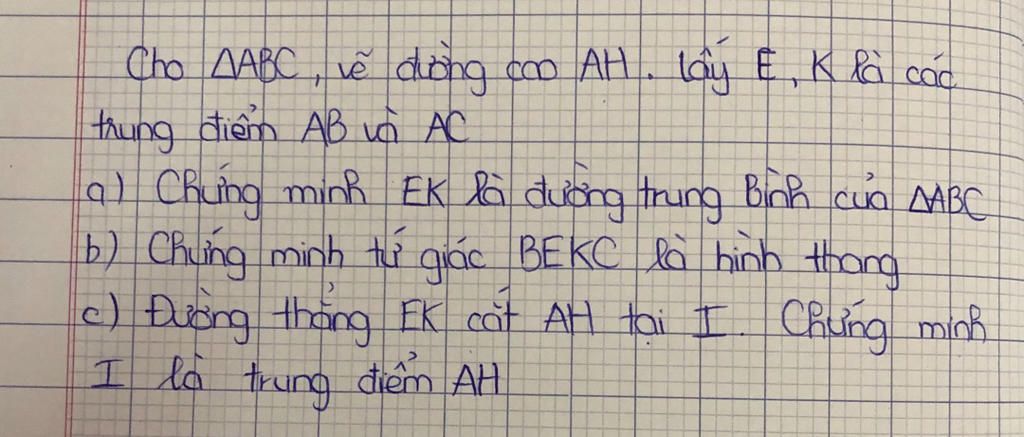 Cho ΔABC, vẽ đường cao AH. lấy E, K là các
trung điểm AB và AC
a) Chứng minh EK là đường trung Bình của ΔABC
b) Chứng minh tứ giác BEKC là hình thang
c) Đường thẳng EK cắt AH tại I. Chứng minh
I là trung điểm AH